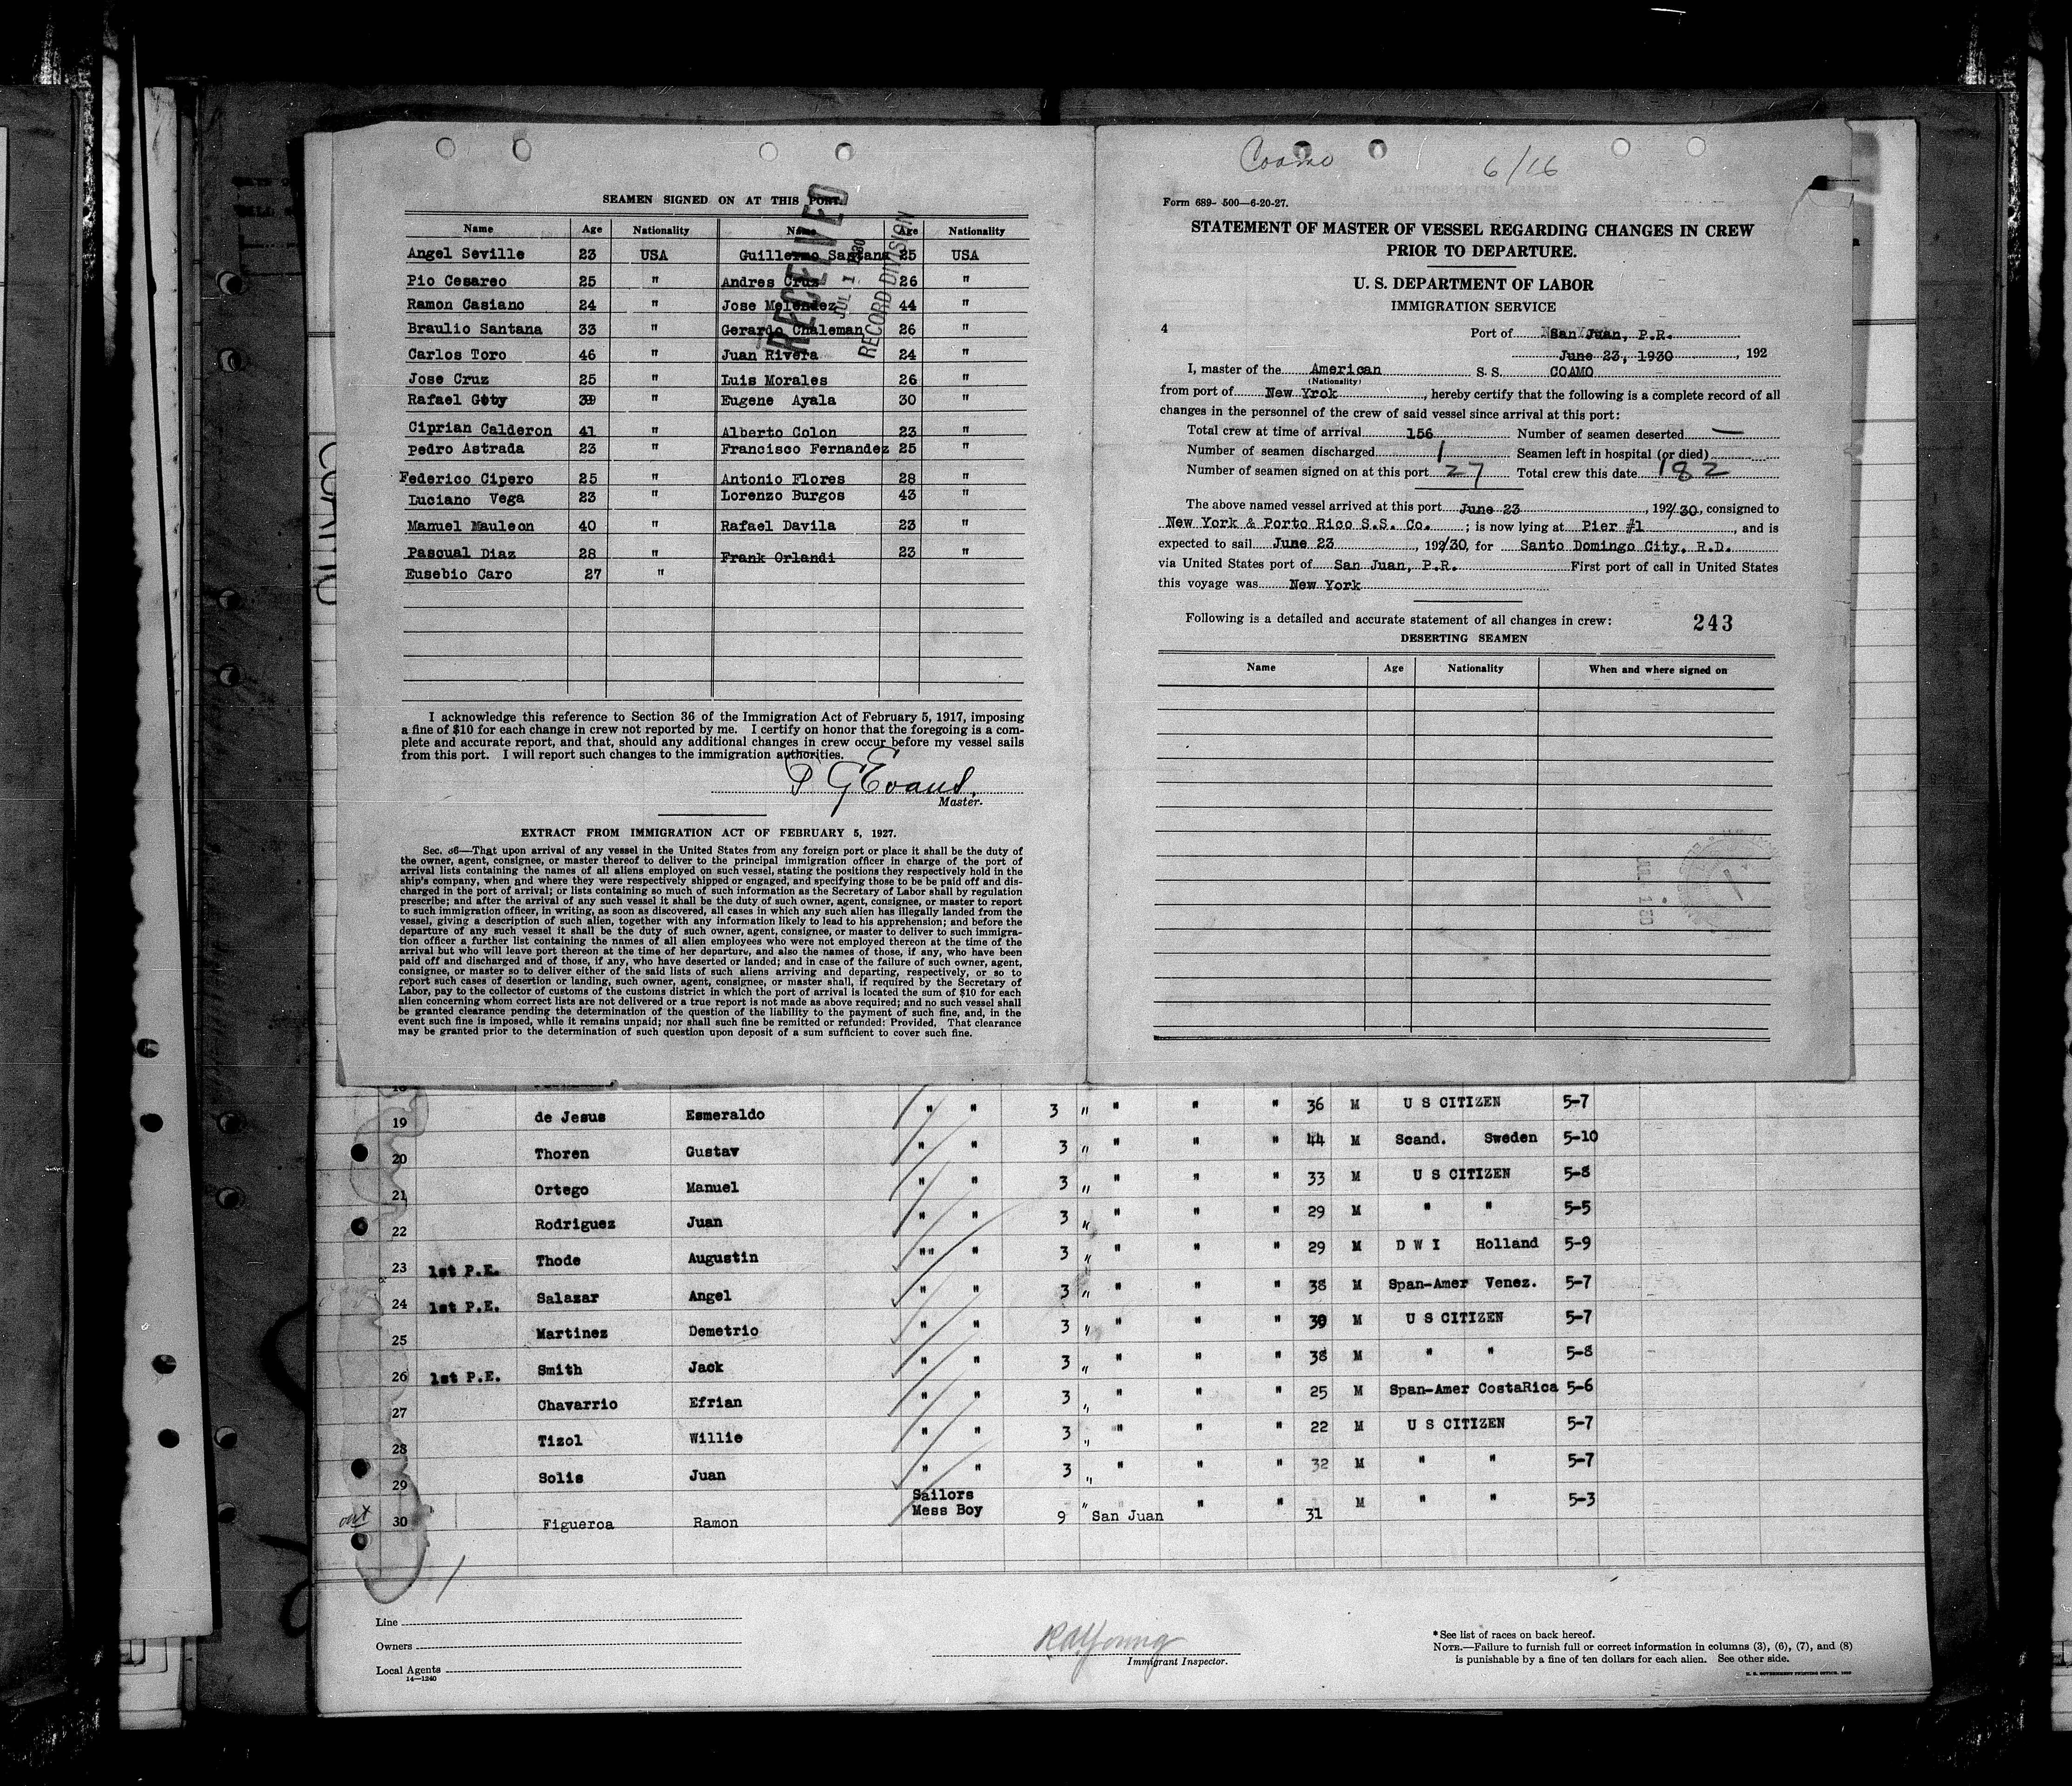 SEAMEN SIGNED ON AT THIS PORT.
Name Age Nationality Name Age Nationality
Angel Seville 23 USA Guillermo Santana 25 USA
Pio Cesareo 25 " Andres Cruz 26 "
Ramon Casiano 24 " Jose Melendez 44 "
Braulio Santana 33 " Gerardo Chaleman 26 "
Carlos Toro 46 " Juan Rivera 24 "
Jose Cruz 25 " Luis Morales 26 "
Rafael " Eugene Ayala 30 "
Ciprian Calderon 41 " Alberto Colon 23 "
Pedro Astrada 23 " Francisco Fernandez 25 "
Federico Cipero 25 " Antonio Flores 28 "
Luciano Vega 23 " Lorenzo Burgos 43 "
Manuel Mauleon 40 " Rafael Davila 23 "
Pascual Diaz 28 " Frank Orlandi 23 "
Eusebio Caro 27 "
RECEIVED
JUL 1 1930
RECORD DIVISION
I acknowledge this reference to Section 36 of the Immigration Act of February 5, 1917, imposing
a fine of $10 for each change in crew not reported by me. I certify on honor that the foregoing is a com-
plete and accurate report, and that, should any additional changes in crew occur before my vessel sails
from this port. I will report such changes to the immigration authorities.
P G Evans,
Master.
EXTRACT FROM IMMIGRATION ACT OF FEBRUARY 5, 1927.
Sec. 36—That upon arrival of any vessel in the United States from any foreign port or place it shall be the duty of
the owner, agent, consignee, or master thereof to deliver to the principal immigration officer in charge of the port of
arrival lists containing the names of all aliens employed on such vessel, stating the positions they respectively hold in the
ship's company, when and where they were respectively shipped or engaged, and specifying those to be be paid off and dis-
charged in the port of arrival; or lists containing so much of such information as the Secretary of Labor shall by regulation
prescribe; and after the arrival of any such vessel it shall be the duty of such owner, agent, consignee, or master to report
to such immigration officer, in writing, as soon as discovered, all cases in which any such alien has illegally landed from the
vessel, giving a description of such alien, together with any information likely to lead to his apprehension; and before the
departure of any such vessel it shall be the duty of such owner, agent, consignee, or master to deliver to such immigra-
tion officer a further list containing the names of all alien employees who were not employed thereon at the time of the
arrival but who will leave port thereon at the time of her departure, and also the names of those, if any, who have been
paid off and discharged and of those, if any, who have deserted or landed; and in case of the failure of such owner, agent,
consignee, or master so to deliver either of the said lists of such aliens arriving and departing, respectively, or so to
report such cases of desertion or landing, such owner, agent, consignee, or master shall, if required by the Secretary of
Labor, pay to the collector of customs of the customs district in which the port of arrival is located the sum of $10 for each
alien concerning whom correct lists are not delivered or a true report is not made as above required; and no such vessel shall
be granted clearance pending the determination of the question of the liability to the payment of such fine, and, in the
event such fine is imposed, while it remains unpaid; nor shall such fine be remitted or refunded: Provided, That clearance
may be granted prior to the determination of such question upon deposit of a sum sufficient to cover such fine.
Coamo 6/16
Form 689- 500—6-20-27.
STATEMENT OF MASTER OF VESSEL REGARDING CHANGES IN CREW
PRIOR TO DEPARTURE.
U. S. DEPARTMENT OF LABOR
IMMIGRATION SERVICE
4
Port of San Juan, P.R.
June 23, 1930, 192
I, master of the American S. S. COAMO
(Nationality)
from port of New Yrok, hereby certify that the following is a complete record of all
changes in the personnel of the crew of said vessel since arrival at this port:
Total crew at time of arrival 156 Number of seamen deserted —
Number of seamen discharged 1 Seamen left in hospital (or died)
Number of seamen signed on at this port 27 Total crew this date 182
The above named vessel arrived at this port June 23, 192/30, consigned to
New York & Porto Rico S.S. Co. ; is now lying at Pier #1, and is
expected to sail June 23, 192/30, for Santo Domingo City, R.D.
via United States port of San Juan, P.R. First port of call in United States
this voyage was New York
Following is a detailed and accurate statement of all changes in crew: 243
DESERTING SEAMEN
Name Age Nationality When and where signed on
19 de Jesus Esmeraldo " " 3 " " " " 36 M U S CITIZEN 5-7
20 Thoren Gustav " " 3 " " " " 44 M Scand. Sweden 5-10
21 Ortego Manuel " " 3 " " " " 33 M U S CITIZEN 5-8
22 Rodriguez Juan " " 3 " " " " 29 M " " 5-5
23 1st P.E. Thode Augustin "" " 3 " " " " 29 M D W I Holland 5-9
24 1st P.E. Salazar Angel " " 3 " " " " 38 M Span-Amer Venez. 5-7
25 Martinez Demetrio " " 3 " " " " 39 M U S CITIZEN 5-7
26 1st P.E. Smith Jack " " 3 " " " " 38 M " " 5-8
27 Chavarrio Efrian " " 3 " " " " 25 M Span-Amer CostaRica 5-6
28 Tizol Willie " " 3 " " " " 22 M U S CITIZEN 5-7
29 Solis Juan " " 3 " " " " 32 M " " 5-7
out 30 Figueroa Ramon Sailors Mess Boy 9 " San Juan " " 31 M " " 5-3
Line
Owners
Local Agents
14—1240
RAYoung
Immigrant Inspector.
*See list of races on back hereof.
NOTE.—Failure to furnish full or correct information in columns (3), (6), (7), and (8)
is punishable by a fine of ten dollars for each alien. See other side.